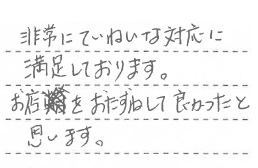 非常にていねいな対応に
満足しております。
お店をおたずねして良かったと
思います。